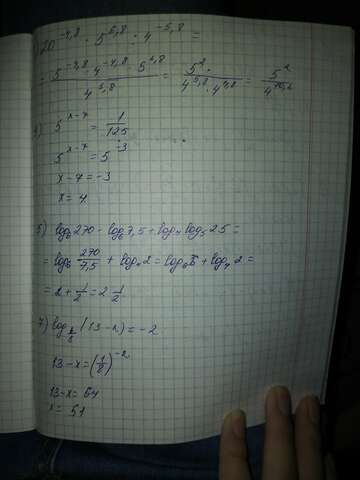 20^{-4,8} · 5^{6,8} : 4^{-5,8} =
= \frac{5^{-4,8} · 4^{-4,8} · 5^{6,8}}{4^{5,8}} = \frac{5^2 ·}{4^{5,8} · 4^{4,8}} = \frac{5^2}{4^{10,6}}
5^{x-7} = \frac{1}{125}
5^{x-7} = 5^{-3}
x-7 = -3
x = 4
5) log_6 270 - log_6 7,5 + log_4 log_5 25 =
= log_6 \frac{270}{7,5} + log_4 2 = log_6 + log_4 2 =
= 2 + \frac{1}{2} = 2 \frac{1}{2}
7) log_{\frac{1}{8}} (13-x) = -2
13-x = (\frac{1}{8})^{-2}
13-x = 64
x = 51